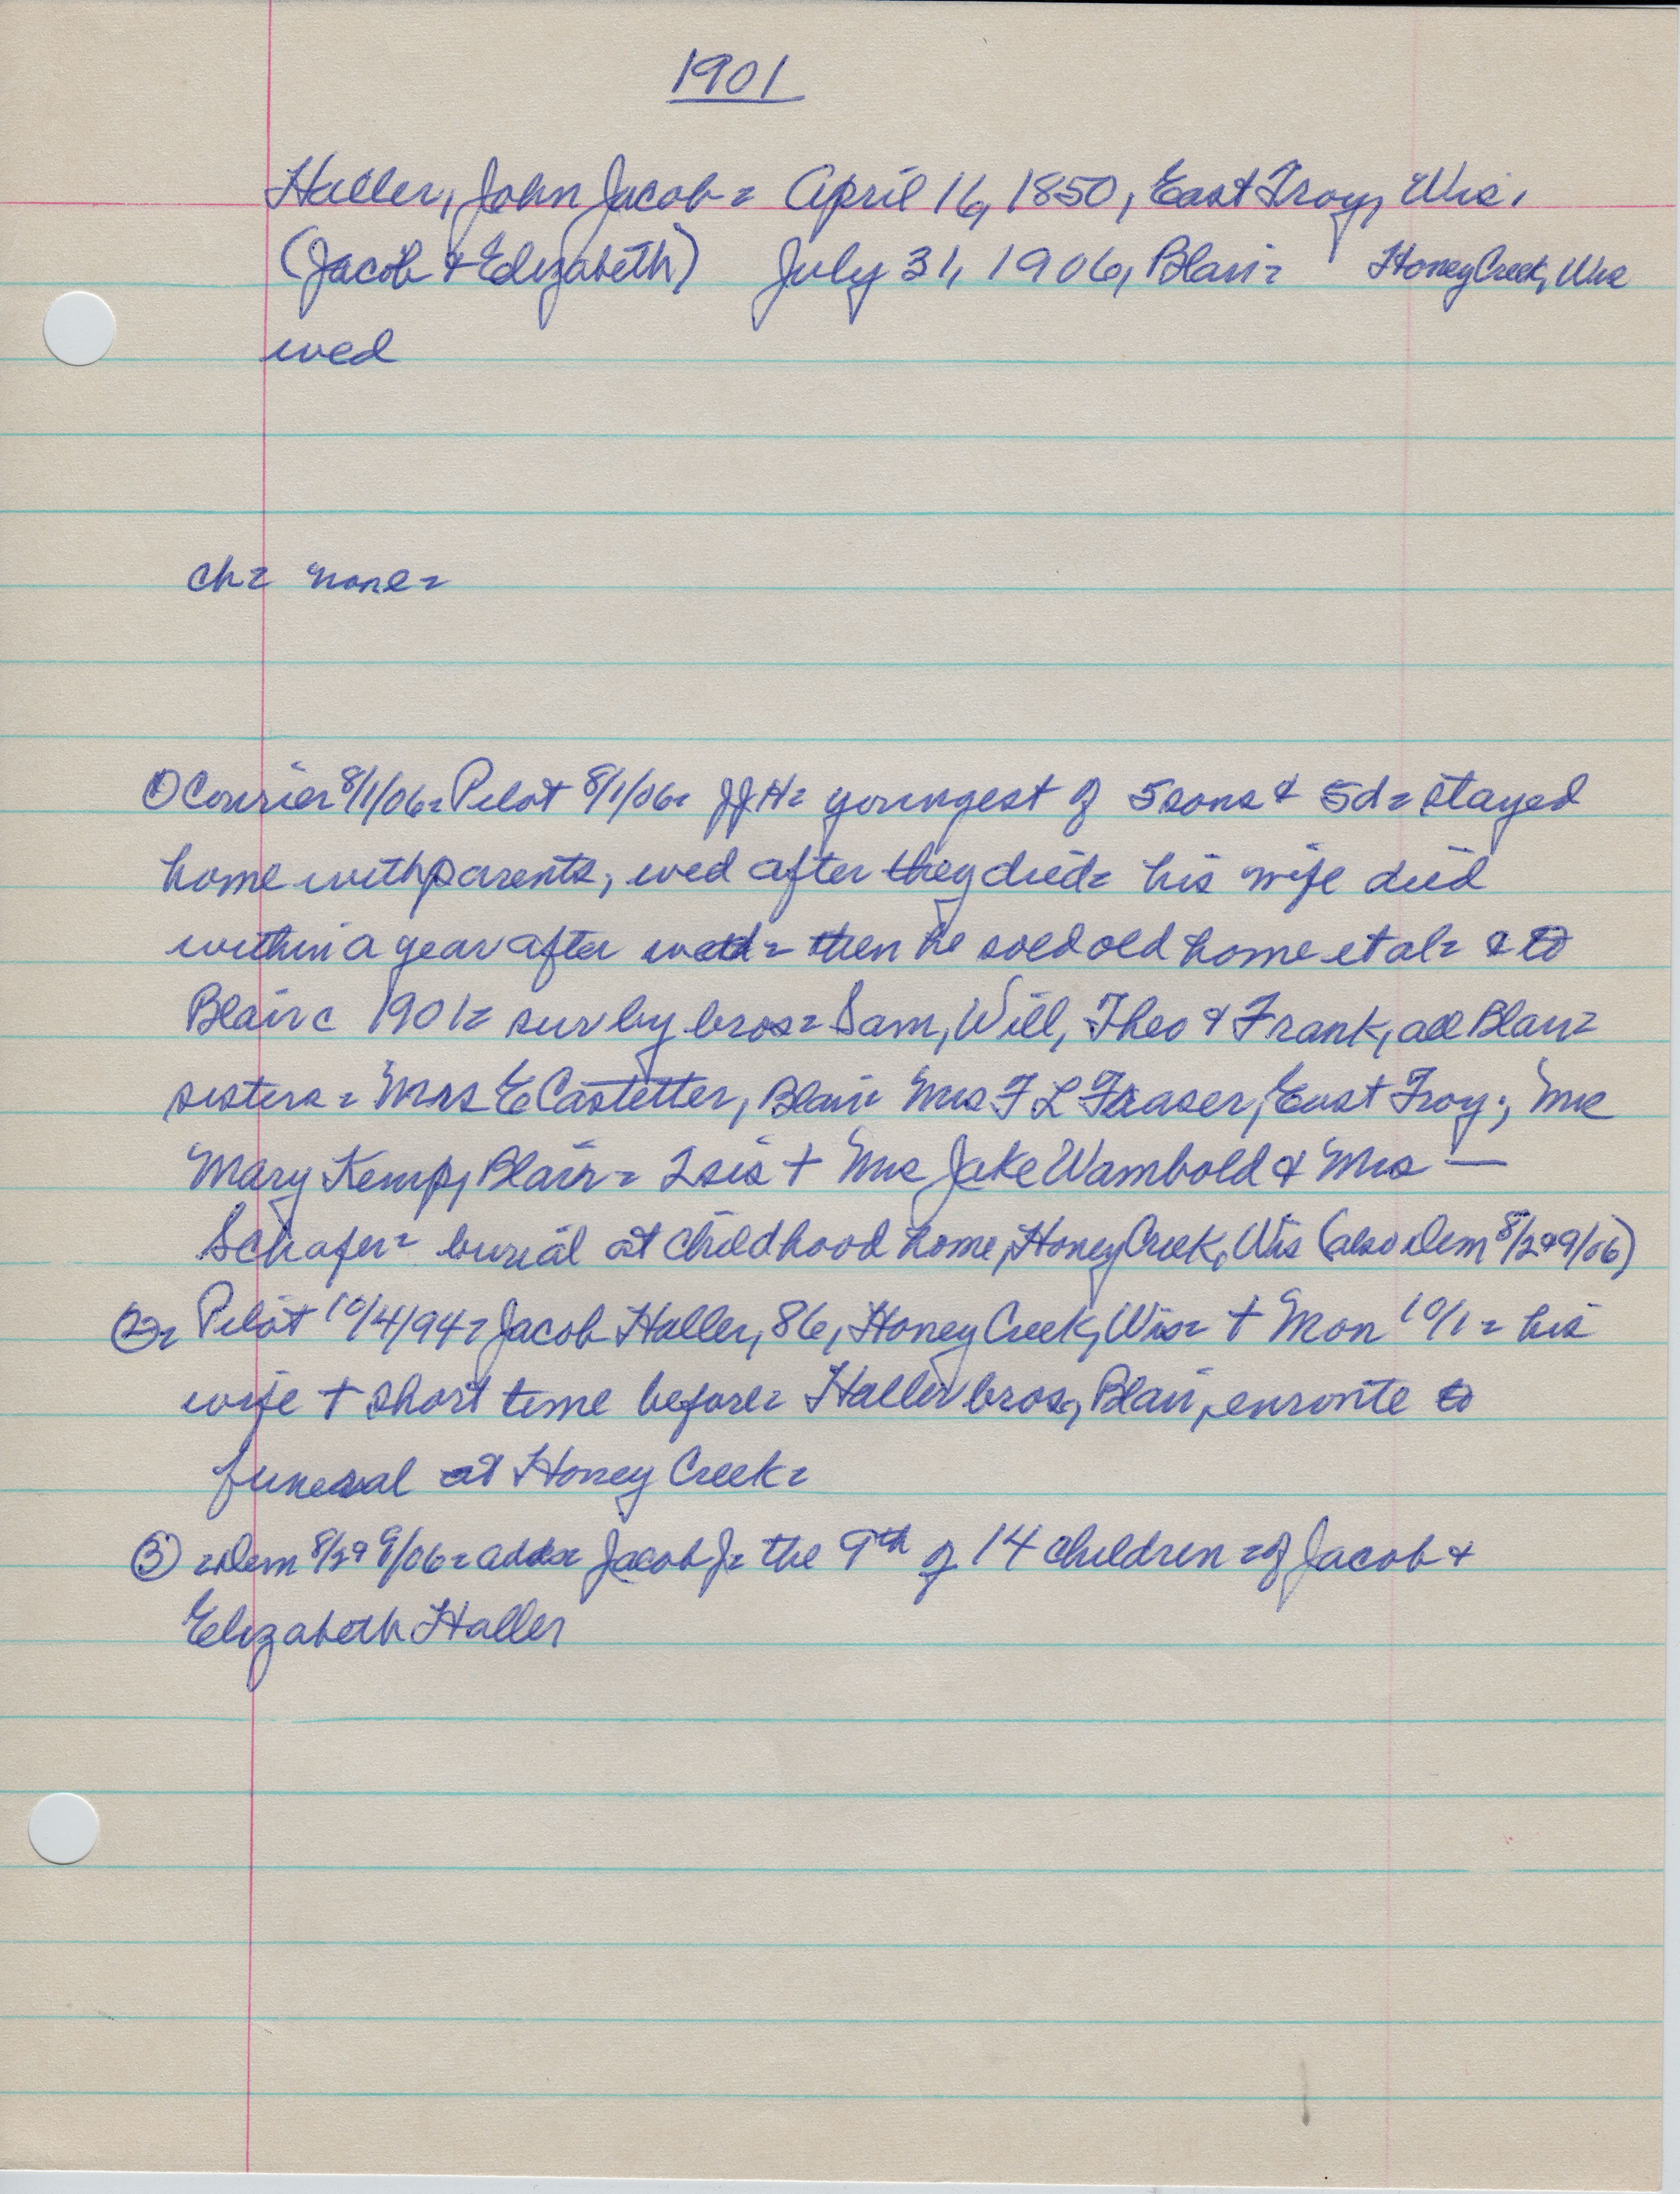 1901
Haller, John Jacob = April 16, 1850, East Troy, Wis.
(Jacob & Elizabeth) July 31, 1906, Blair = Honey Creek, Wis
wed
ch = none =
① Courier 8/1/06 = Pilot 8/1/06 = JJH = youngest of 5 sons & 5 d = stayed
home with parents, wed after they died = his wife died
within a year after wed = then he sold old home et al = & to
Blair c 1901 = sur by bros = Sam, Will, Theo & Frank, all Blair =
sisters = Mrs E Castetter, Blair = Mrs F L Fraser, East Troy; Mrs
Mary Kemp, Blair = 2 sis + Mrs Jake Wambold & Mrs —
Schafer = burial at childhood home, Honey Creek, Wis (also Dem 8/2&9/06)
② = Pilot 10/4/94 = Jacob Haller, 86, Honey Creek, Wis = + Mon 10/1 = his
wife + short time before = Haller bros, Blair, enroute to
funeral at Honey Creek =
③ = Dem 8/2&9/06 = adds = Jacob J = the 9th of 14 children = of Jacob &
Elizabeth Haller